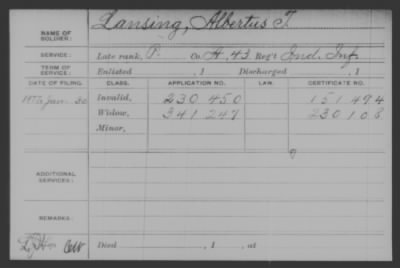 NAME OF SOLDIER: Lansing, Albertus T.
SERVICE: Late rank, P. Co. H, 43 Reg't Ind. Inf.
TERM OF SERVICE: Enlisted , 1 Discharged , 1
DATE OF FILING. CLASS. APPLICATION NO. LAW. CERTIFICATE NO.
Jan. 30 Invalid, 230 450 151 494
Widow, 341 247 230 108
Minor,
ADDITIONAL SERVICES:
REMARKS:
Died , 1 , at